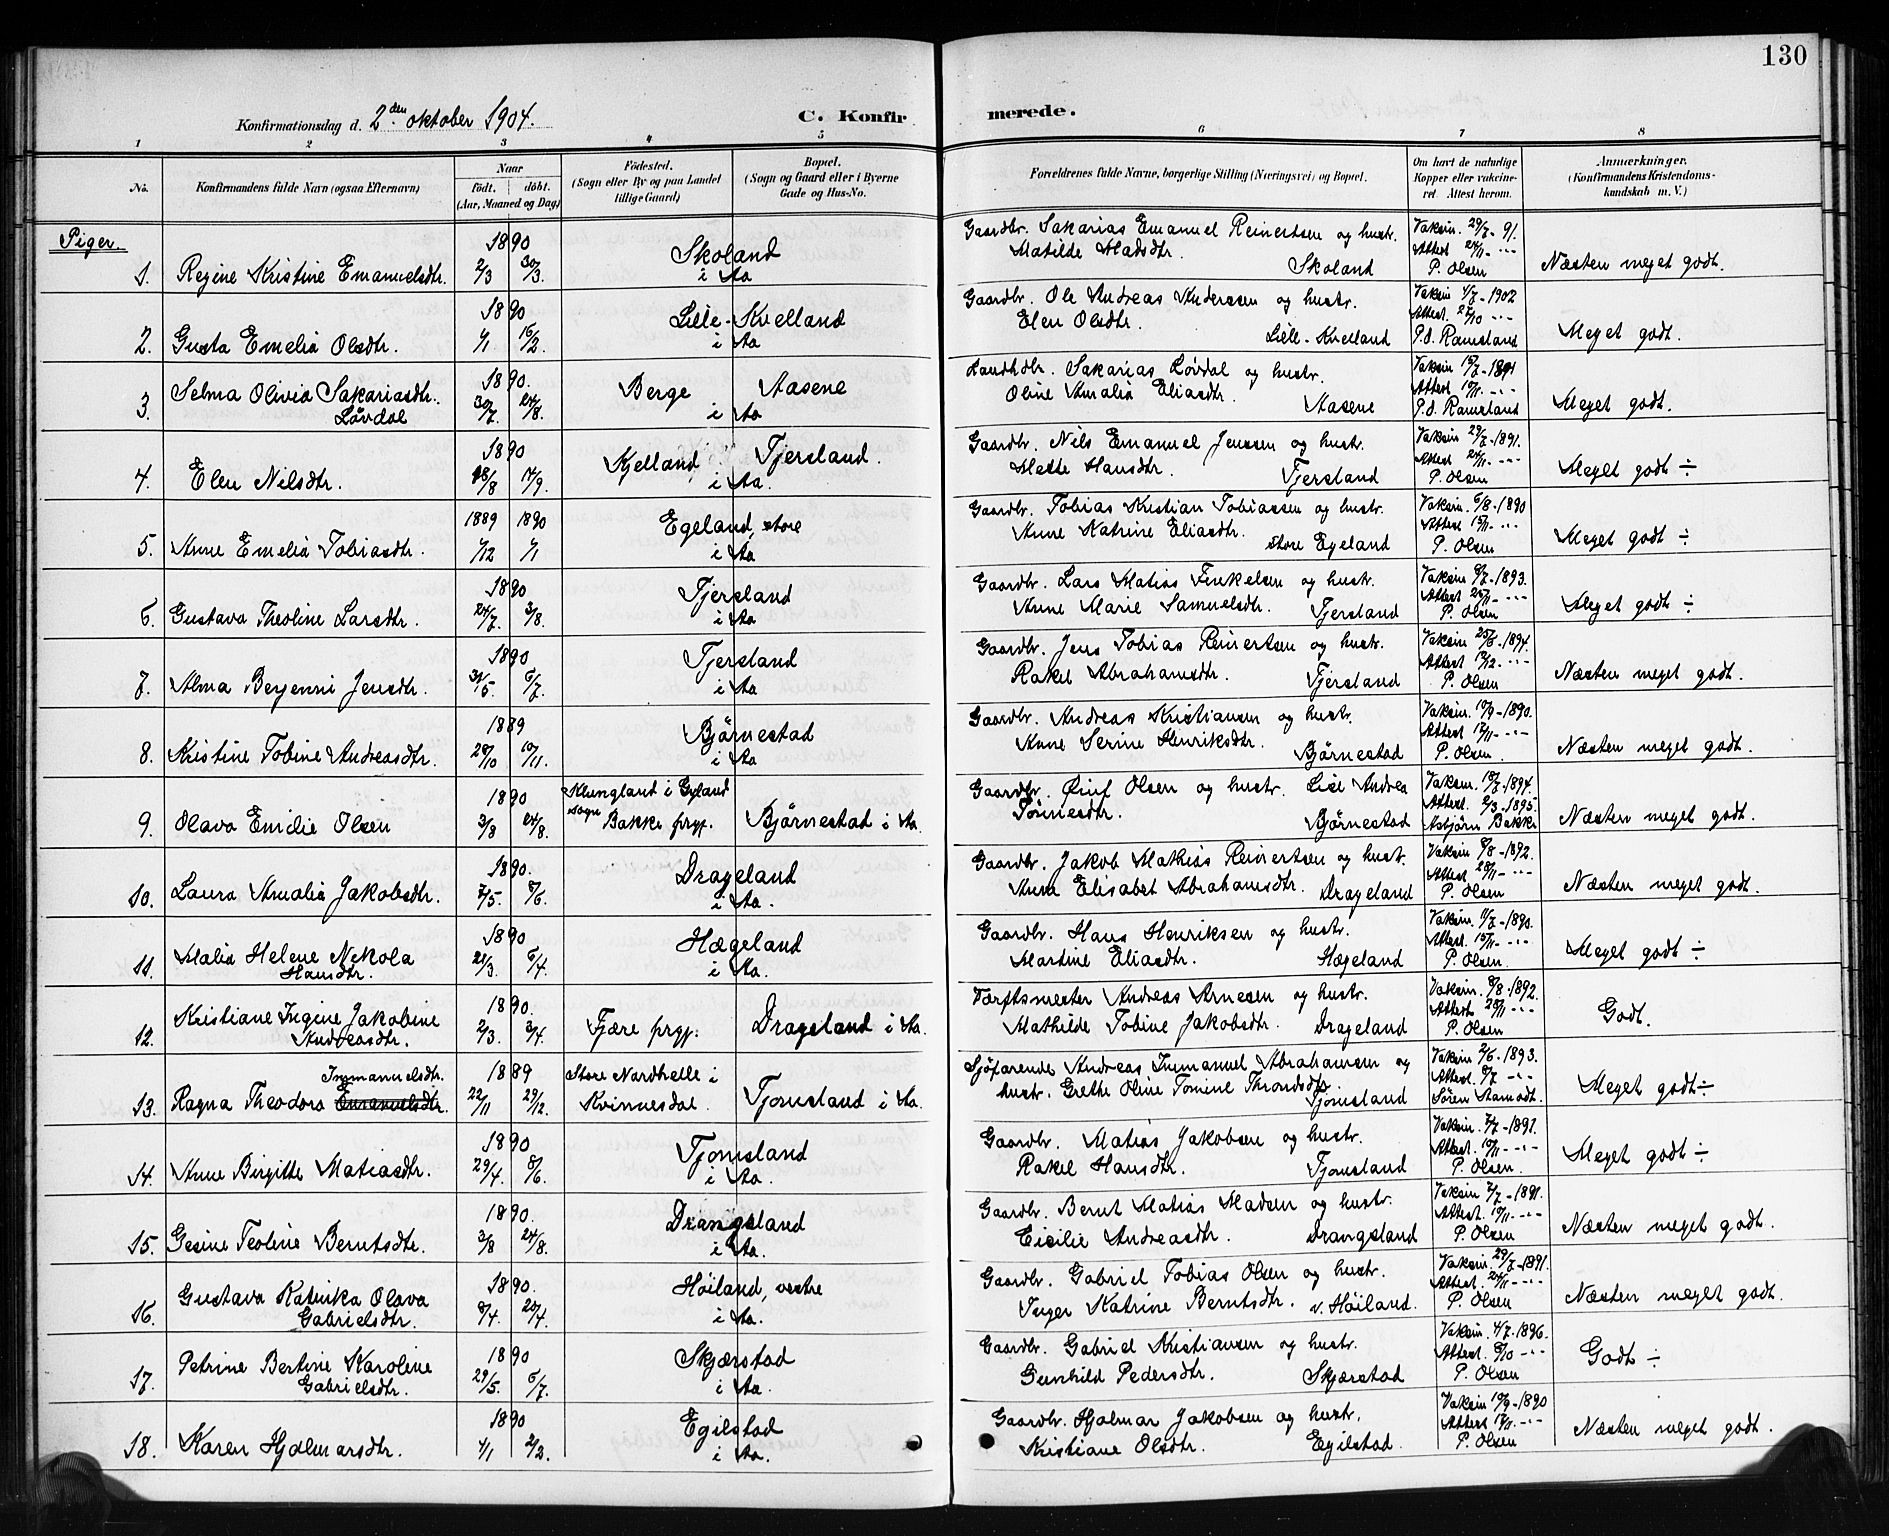 130
Konfirmationsdag d. 2den oktober 1904.
C. Konfirmerede.
1 2 3 4 5 6 7 8
No.
Konfirmandens fulde Navn (ogsaa Efternavn)
Naar
födt. döbt.
(Aar, Maaned og Dag)
Födested.
(Sogn eller By og paa Landet
tillige Gaard)
Bopæl.
(Sogn og Gaard eller i Byerne
Gade og Hus-No.
Forældrenes fulde Navne, borgerlige Stilling (Næringsvei) og Bopæl.
Om havt de naturlige
Kopper eller vakcine-
ret. Attest herom.
Anmærkninger.
(Konfirmandens Kristendoms-
kundskab m. V.)
Piger.
1. Regine Kristine Emanuelsdtr.
1890
2/3 30/3.
Skoland
i Aa
Gaardbr. Sakarias Emanuel Reinertsen og hustr.
Matilde Madsdtr. Skoland
Vaksin. 29/7-91.
Attest 24/11 - "-
P. Olsen
Næsten meget godt.
2. Gusta Emelia Olsdtr.
1890
1/1 16/2.
Lille-Kvelland
i Aa
Gaardbr. Ole Andreas Anderssen og hustr.
Elen Olsdtr. Lille-Kvelland
Vaksin 4/7-1902
P.O. Ramsland
Meget godt.
3. Selma Olivia Sakariasdtr.
Løvdal
1890.
30/7. 24/8.
Berge Aasene
i Aa
Sakarias Løvdal og hustr.
Oline Amalia Eliasdtr. Aasene
Vaksin 15/7-1891
Attest 10/11 - "-
P.O. Ramsland
Meget godt.
4. Elen Nilsdtr.
1890
18/8 14/9.
Kjelland Tjersland.
i Aa.
Gaardbr. Nils Emanuel Jenssen og hustr.
Mette Hansdtr. Tjersland
Vaksin 29/7-1891.
Attest 24/11 - "-
P. Olsen
Meget godt ÷
5. Anne Emelia Tobiasdtr.
1889 1890
1/12 1/1
Egeland, store
i Aa
Gaardbr. Tobias Kristian Tobiassen og hustr.
Anne Katrine Eliasdtr. store Egeland
Vaksin 6/8-1890
Attest 15/11 - "-
P. Olsen
Meget godt ÷
6. Gustava Theoline Larsdtr.
1890
24/7. 3/8.
Tjersland
i Aa
Gaardbr. Lars Matias Finkelsen og hustr.
Anne Marie Samuelsdtr. Tjersland
Vaksin 8/7-1893.
Attest 25/11 - "-
P. Olsen
Meget godt ÷
7. Alma Berjenni Jensdtr.
1890
31/5. 6/7.
Tjersland
i Aa
Gaardbr. Jens Tobias Reinertsen og hustr.
Rakel Abrahamsdtr. Tjersland
P. Olsen
Næsten meget godt.
8. Kristine Tobine Andreasdtr.
1889
20/10 10/11.
Bjørnestad
i Aa
Gaardbr. Andreas Kristiansen og hustr.
Anne Serine Henriksdtr. Bjørnestad
Vaksin. 10/9-1890.
Attest 17/11 - "-
P. Olsen
Næsten meget godt.
9. Olava Emilie Olsen
1890
3/8 24/8.
Klungland i Gyland
sogn Bakke prgj.
Bjørnestad i Aa.
Gaardbr. Olsen og hustr. Lise Andrea
Tönnesdtr. Bjørnestad
Vaksin. 18/7-1894.
Attest. 2/3-1895.
Asbjörn Bakke
Næsten meget godt.
10. Laura Amalia Jakobsdtr.
1890.
7/5. 8/6.
Drageland
i Aa.
Gaardbr. Jakob Mathias Reinertsen og hustr.
Anna Elisabet Abrahamsdtr. Drageland
Vaksin 8/8-1892.
Attest 28/11 - "-
P. Olsen
Næsten meget godt.
11. Malia Helene Nikola
Hansdtr.
1890
21/3. 6/4.
Hægeland
i Aa.
Gaardbr. Hans Henriksen og hustr.
Martine Eliasdtr. Hægeland
Vaksin. 11/7-1890.
Attest. 15/11 - "-
P. Olsen.
Meget godt ÷
12. Kristiane Ingine Jakobine
Andreasdtr.
1890.
2/3. 3/4.
Fjære prgj.
Drageland i Aa.
Tørftsmester Andreas Arnesen og hustr.
Mathilde Tobine Jakobsdtr. Drageland
Vaksin. 8/8-1892.
Attest 28/11 - "-
P. Olsen
Godt.
13. Ragna Theodora Emanuelsdtr.
Immanuelsdtr.
1889
22/11 29/12.
Store Nardhelle i
Kvinnesdal.
Tjomsland i Aa.
Sjöfarende Andreas Immanuel Abrahamsen og
hustr. Grethe Oline Tomine Throndsdtr.
Tjomsland
Vaksin 2/6-1893.
Attest. 8/7 - "-
Sören Aamodt.
Meget godt ÷
14. Anne Birgitte Matiasdtr.
1890
29/4. 8/6.
Tjomsland
i Aa
Gaardbr. Matias Jakobsen og hustr.
Rakel Hansdtr. Tjomsland
Vaksin. 7/7-1891.
Attest. 10/11 - "-
P. Olsen.
Meget godt ÷
15. Gesine Teoline Berntsdtr.
1890.
3/8 24/8.
Drangsland
i Aa.
Gaardbr. Bernt Matias Madsen og hustr.
Eicilie Andreasdtr. Drangsland
Vaksin 7/7-1891.
Attest. 10/11 - "-
P. Olsen
Næsten meget godt.
16. Gustava Katinka Olava
Gabrielsdtr.
1890
8/4. 20/4.
Höiland, vestre
i Aa
Gaardbr. Gabriel Tobias Olsen og hustr.
Inger Katrine Berntsdtr. v. Höiland.
Vaksin. 29/7-1891.
Attest. 24/11 - "-
P. Olsen
Næsten meget godt.
17. Petrine Bertine Karoline
Gabrielsdtr.
1890
29/5. 6/7.
Skjærstad
i Aa.
Gaardbr. Gabriel Kristiansen og hustr.
Gunhild Pedersdtr. Skjærstad
Vaksin. 4/7-1896.
Attest. 8/10 - "-
P. Olsen
Godt ÷
18. Karen Hjalmarsdtr.
1890
4/1 2/2.
Egilstad
i Aa.
Gaardbr. Hjalmar Jakobsen og hustr.
Kristiane Olsdtr. Egilstad.
Vaksin 10/9-1890
Attest 17/11 - "-
P. Olsen
Næsten meget godt.